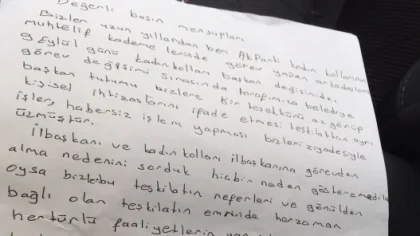 Değerli basın mensupları
Bizler uzun yıllardan beri AkParti kadın kollarının
muhtelif kademelerinde görev yapan arkadaşlarız
9 Eylül günü kadın kolları başkan değişimide,
görev değişimi sırasında tarafımıza belediye
başkan tutumu bizlere bir teşekkürü az görüp
kişisel ihtiraslarını ifade etmesi teşkilatta ayrı
işler, habersiz işlem yapması bizleri ziyadesiyle
üzmüştür.
İlbaşkanı ve kadın kolları ilbaşkanına görevden
alma nedenini sorduk hiçbir neden gösteremediler
Oysa bizler bu teşkilatın neferleri ve gönülden
bağlı olan teşkilatın emrinde herzaman
hertürlü faaliyetlerin